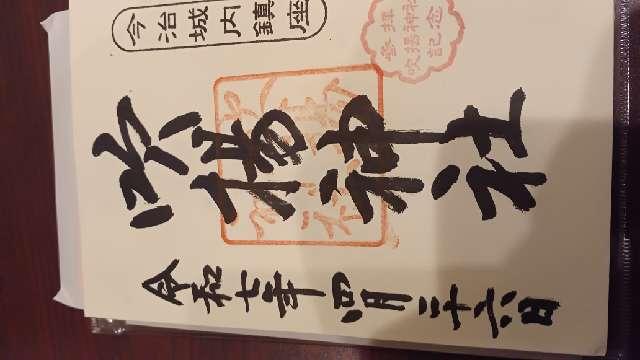 今治城内鎮座
参拝
吹揚神社
記念
吹揚神社
吹揚
神社
令和七年四月二十六日